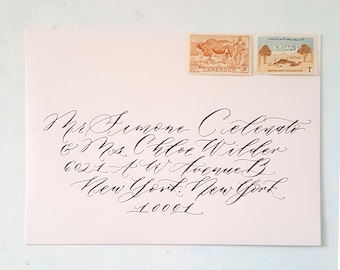 CAMEROUN
Mr Simone Celenato
& Ms. Chloe Wilder
6021 A W Avenue B
New York, New York
10001